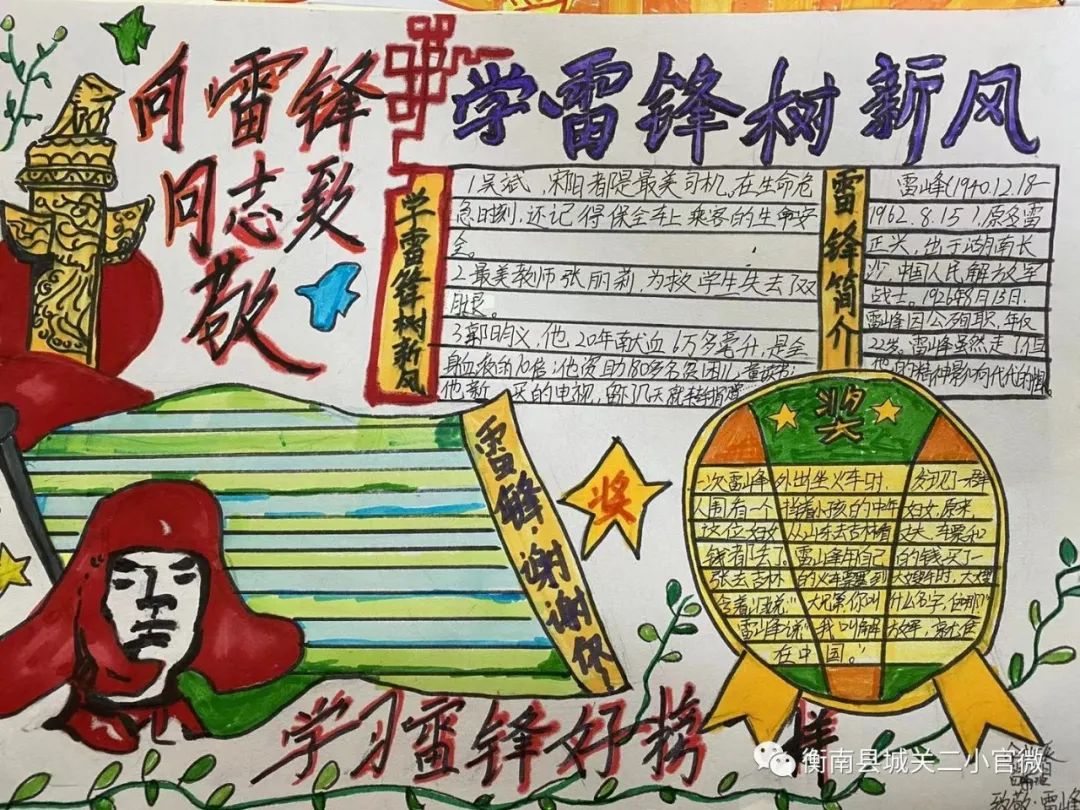 向雷锋
同志致
敬
学雷锋树新风
学雷锋树新风
1.吴斌,宋阳者是最美司机,在生命危
急时刻,还记得保全车上乘客的生命安
全。
2.最美教师张丽莉,为救学生失去了双
腿。
3.郭明义,他20年献血6万多毫升,是全
身血液的10倍;他资助180多名贫困儿童读书;
他新买的电视,
雷锋简介
雷峰(1940.12.18-
1962.8.15),原名雷
正兴,出于湖南长
沙,中国人民解放军
战士。1926年8月15日,
雷峰因公殉职,年仅
22岁。雷峰虽然走了但
他的精神影响代代的
雷锋·谢谢你!
奖
奖
一次雷峰外出坐火车时,发现了一群
人围有一个背着小孩的中年妇女,原来,
这位妇女从山东去吉林看丈夫,车票和
钱都丢了。雷峰用自己的钱买了一
张去吉林的火车票
含着泪说:“大兄弟你叫什么名字,住哪?”
雷峰说:“我叫解放军,家住
在中国。”
学习雷锋好榜样
衡南县城关二小官微
致敬·雷峰